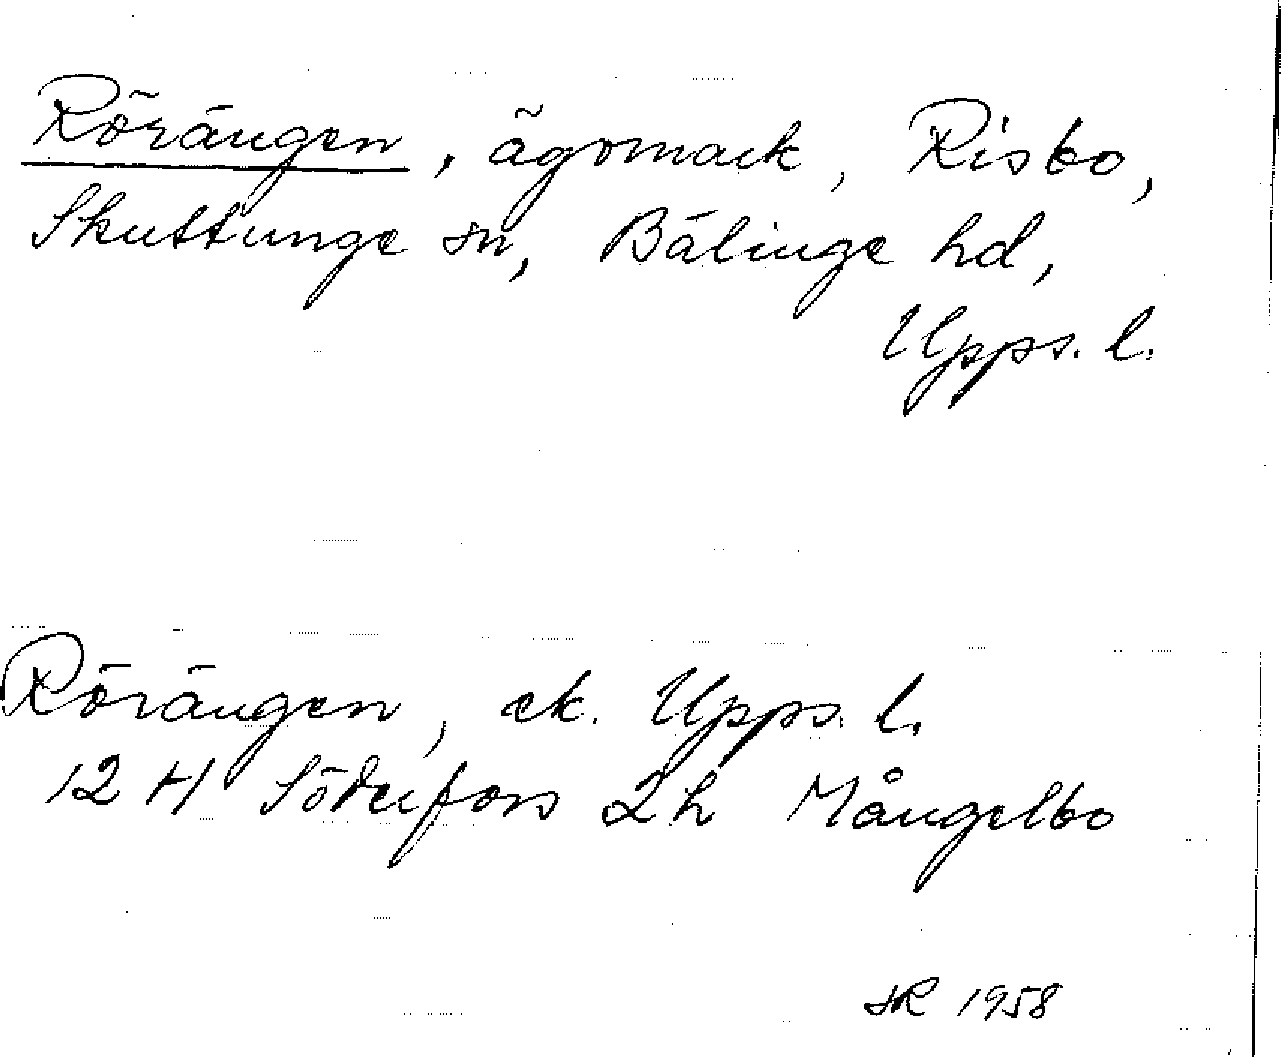 Rörängen, ägomark, Risbo,
Skuttunge sn, Bälinge hd,
Upps. l.
Rörängen, ek. Upps. l.
12 H Söderfors 2h Mångelbo
SR 1958